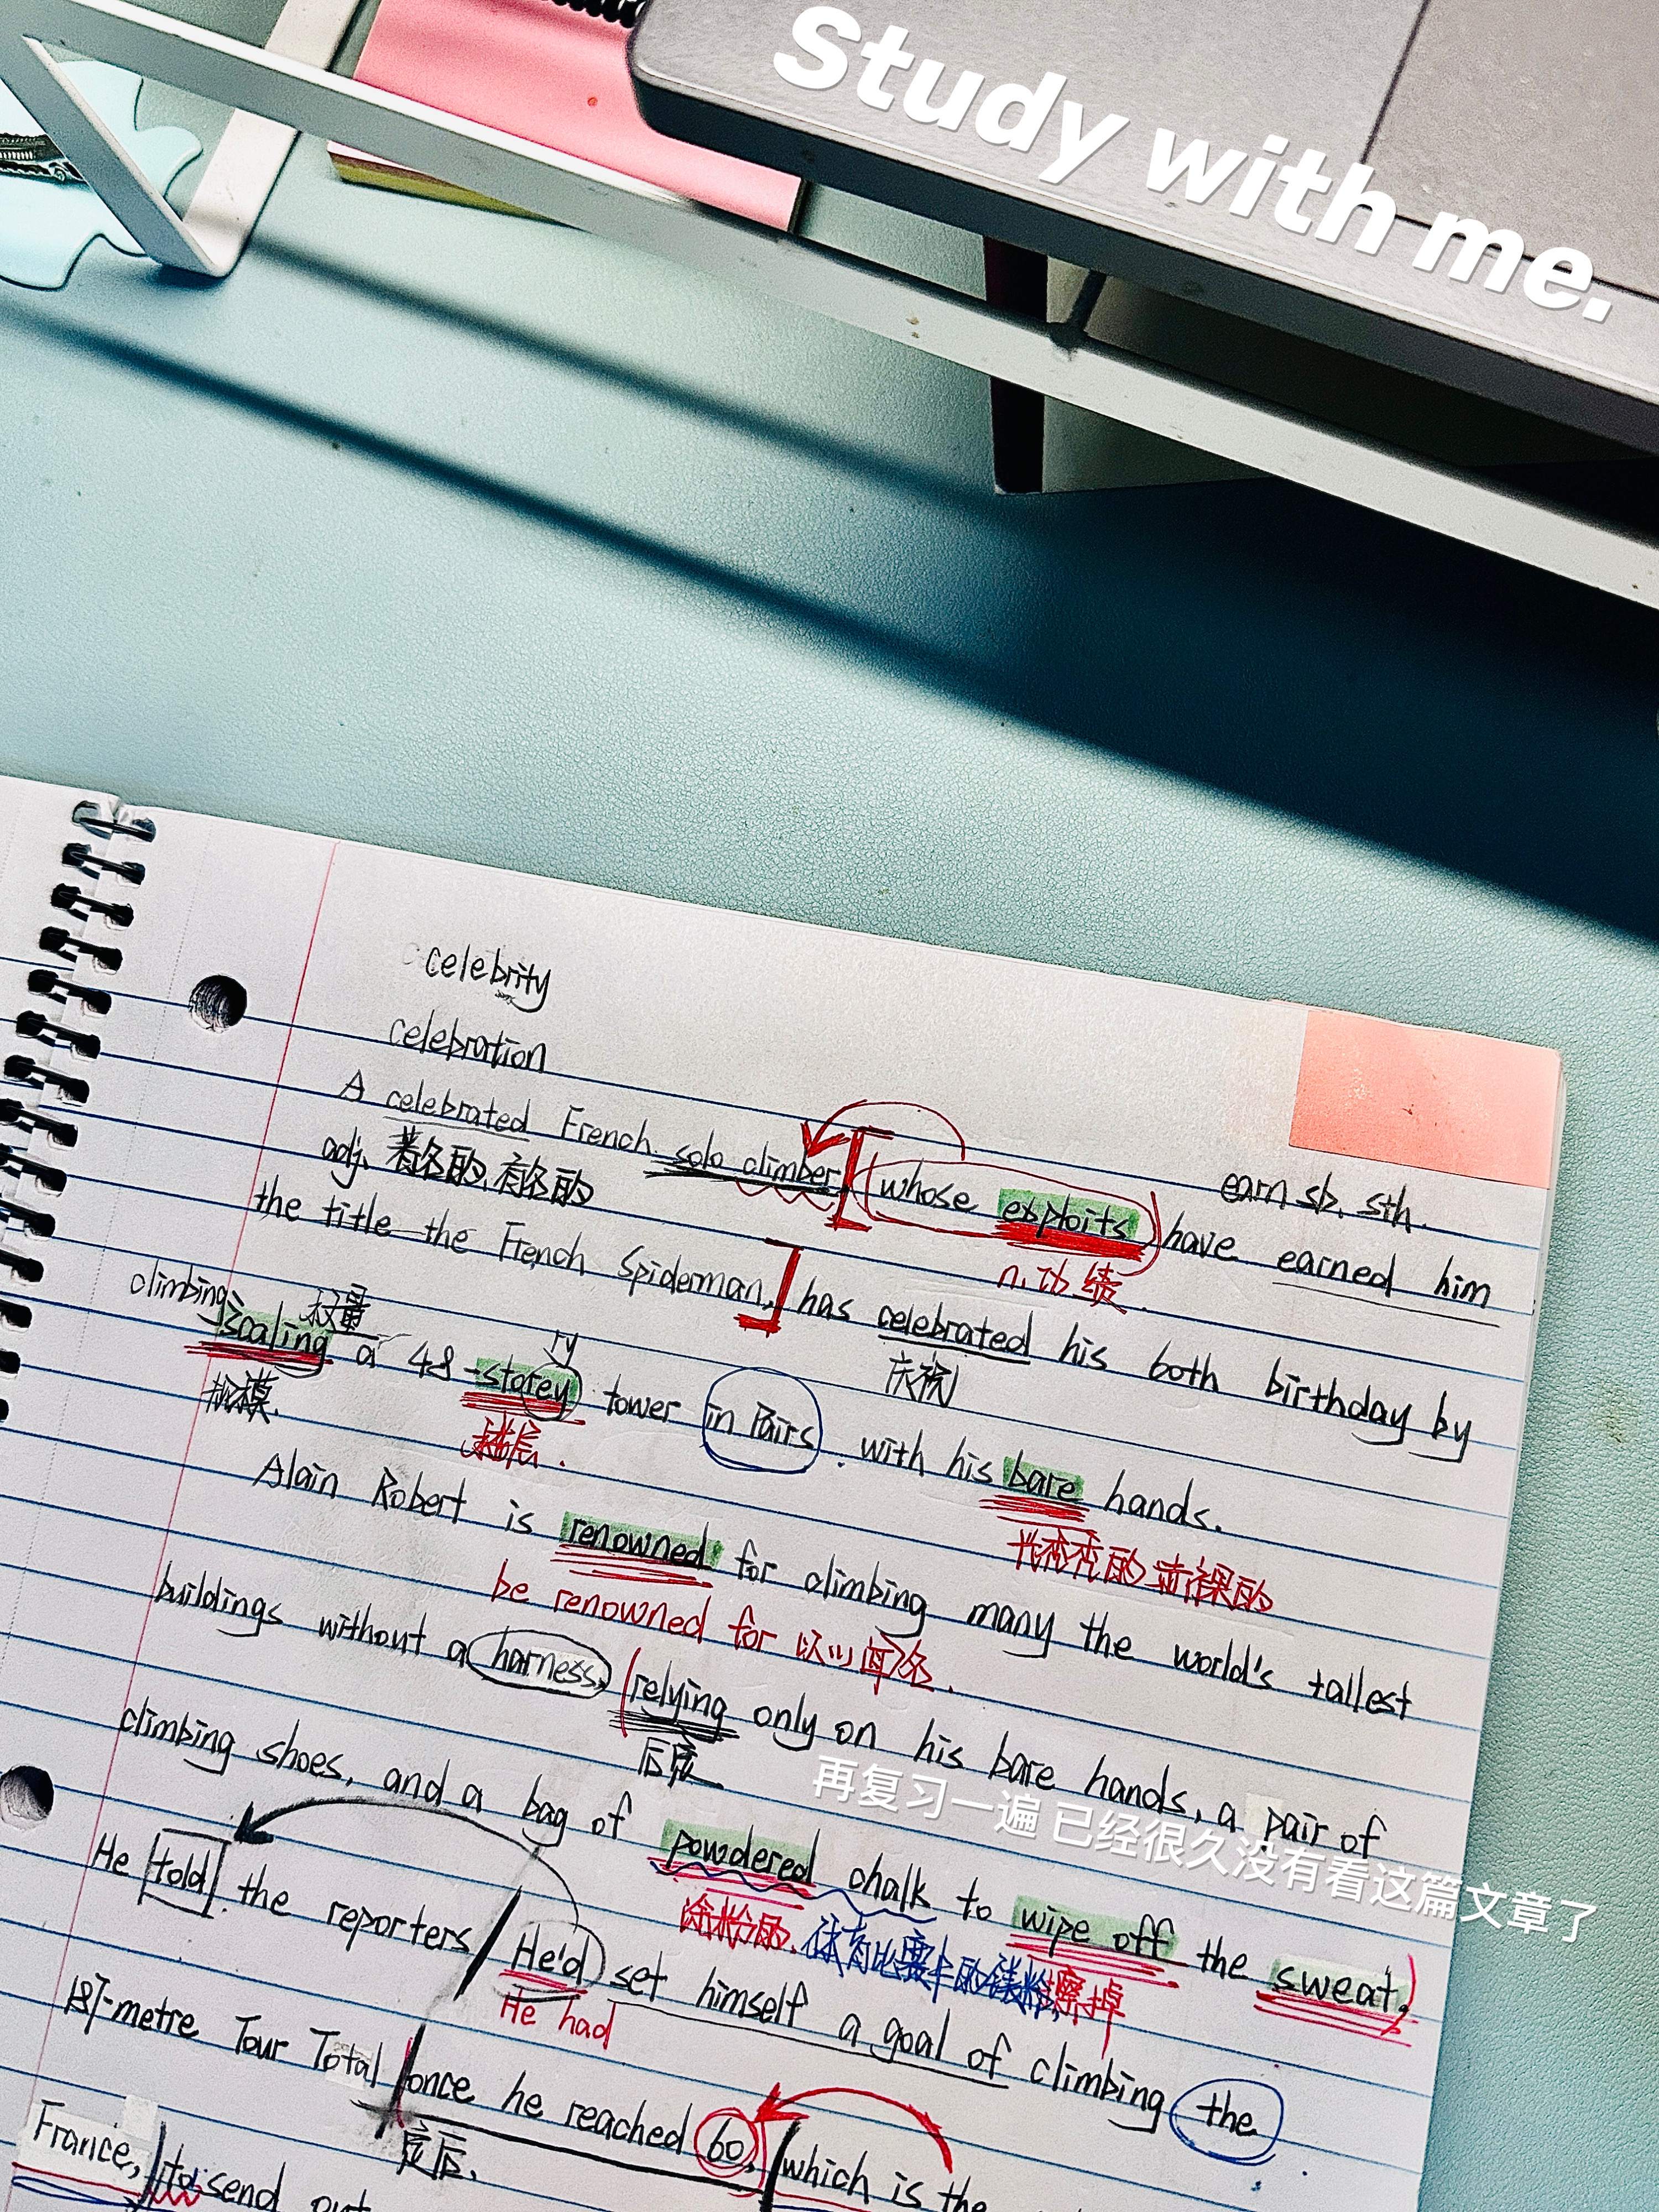 Study with me.
celebrity
celebration
A celebrated French solo climber, whose exploits have earned him
earn sb. sth.
adj. 著名的、有名的
n. 功绩
the title the French Spiderman, has celebrated his both birthday by
庆祝
climbing
权量
ry
scaling a 48-storey tower in Pairs. with his bare hands.
规模
楼层.
光秃秃的 赤裸的
Alain Robert is renowned for climbing many the world's tallest
be renowned for 以…闻名.
buildings without a harness, relying only on his bare hands, a pair of
后定.
再复习一遍 已经很久没有看这篇文章了
climbing shoes, and a bag of powdered chalk to wipe off the sweat,
涂粉的. 体育比赛中的镁粉 擦掉
He told the reporters He'd set himself a goal of climbing the
He had
187-metre Tour Total once he reached 60, which is the
定后.
France, to send out